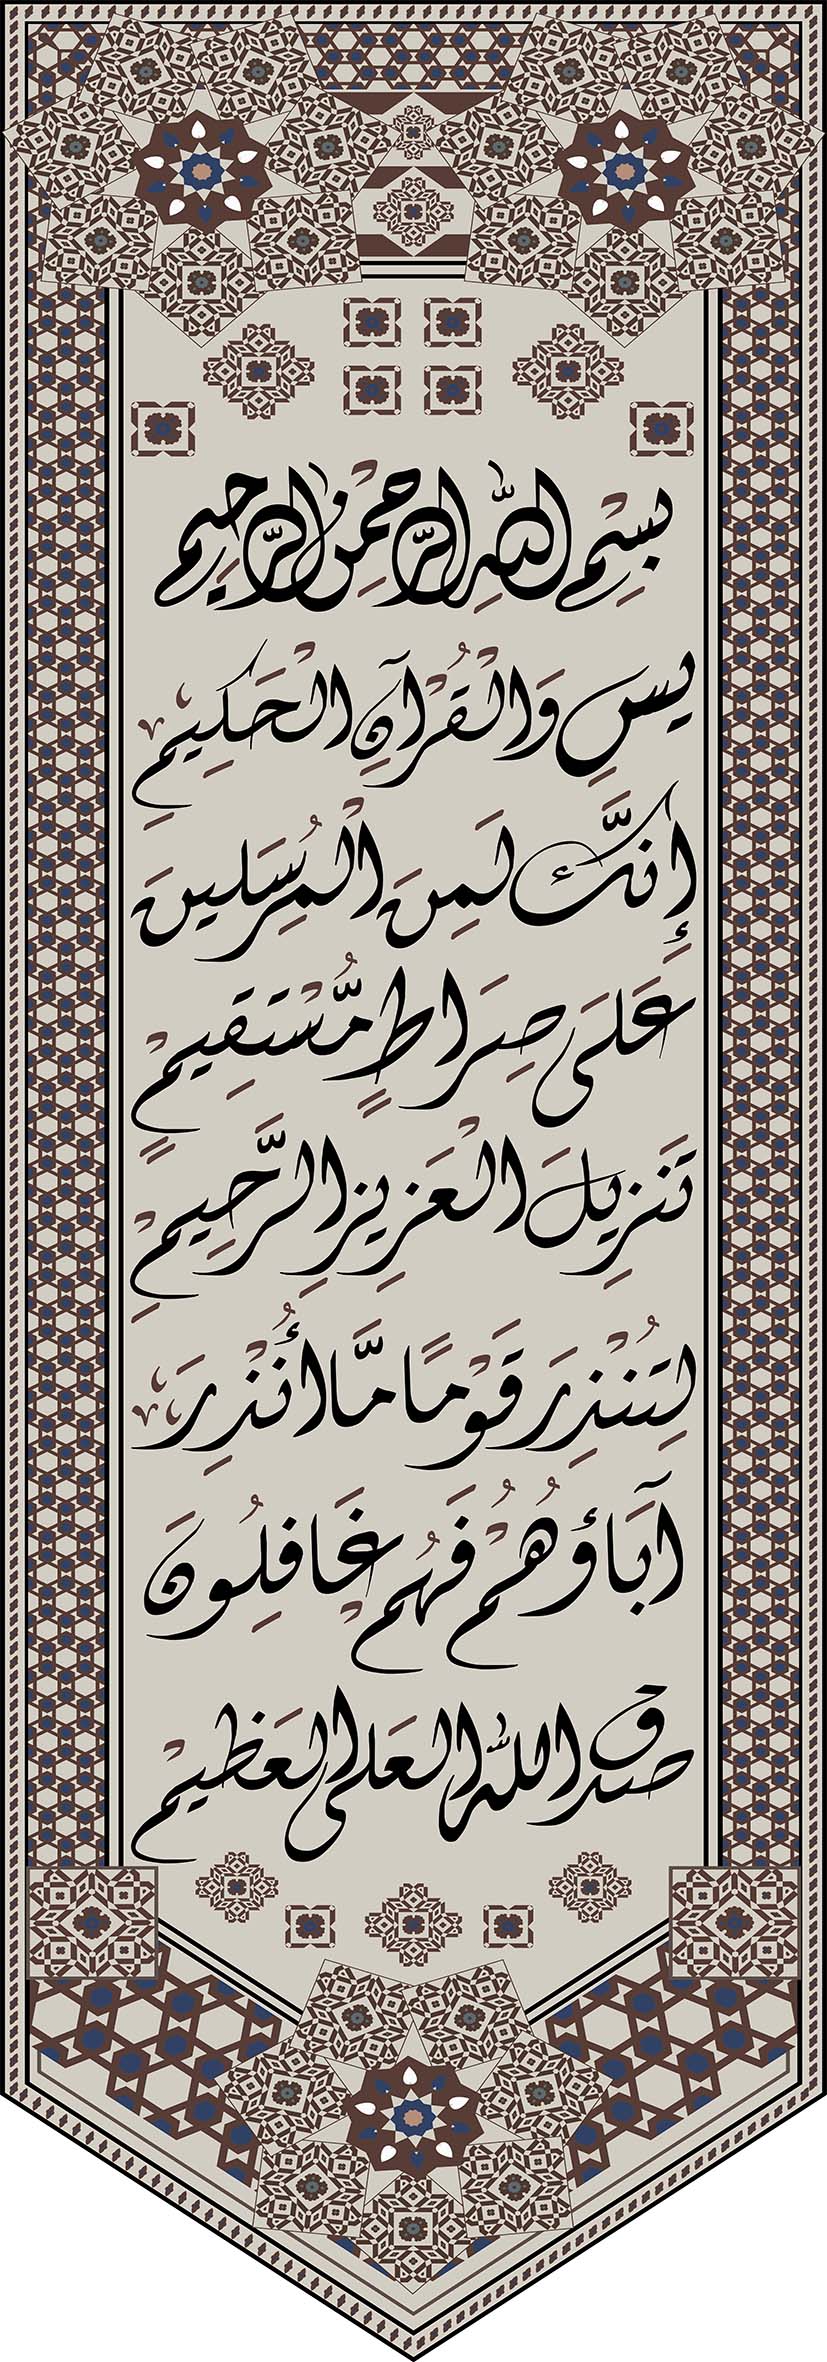 بِسْمِ اللّٰهِ الرَّحْمٰنِ الرَّحِيمِ
يسِ وَالْقُرْآنِ الْحَكِيمِ
إِنَّكَ لَمِنَ الْمُرْسَلِينَ
عَلَى صِرَاطٍ مُّسْتَقِيمٍ
تَنزِيلَ الْعَزِيزِ الرَّحِيمِ
لِتُنْذِرَ قَوْمًا مَّا أُنْذِرَ
آبَاؤُهُمْ فَهُمْ غَافِلُونَ
صدق الله العلى العظيم